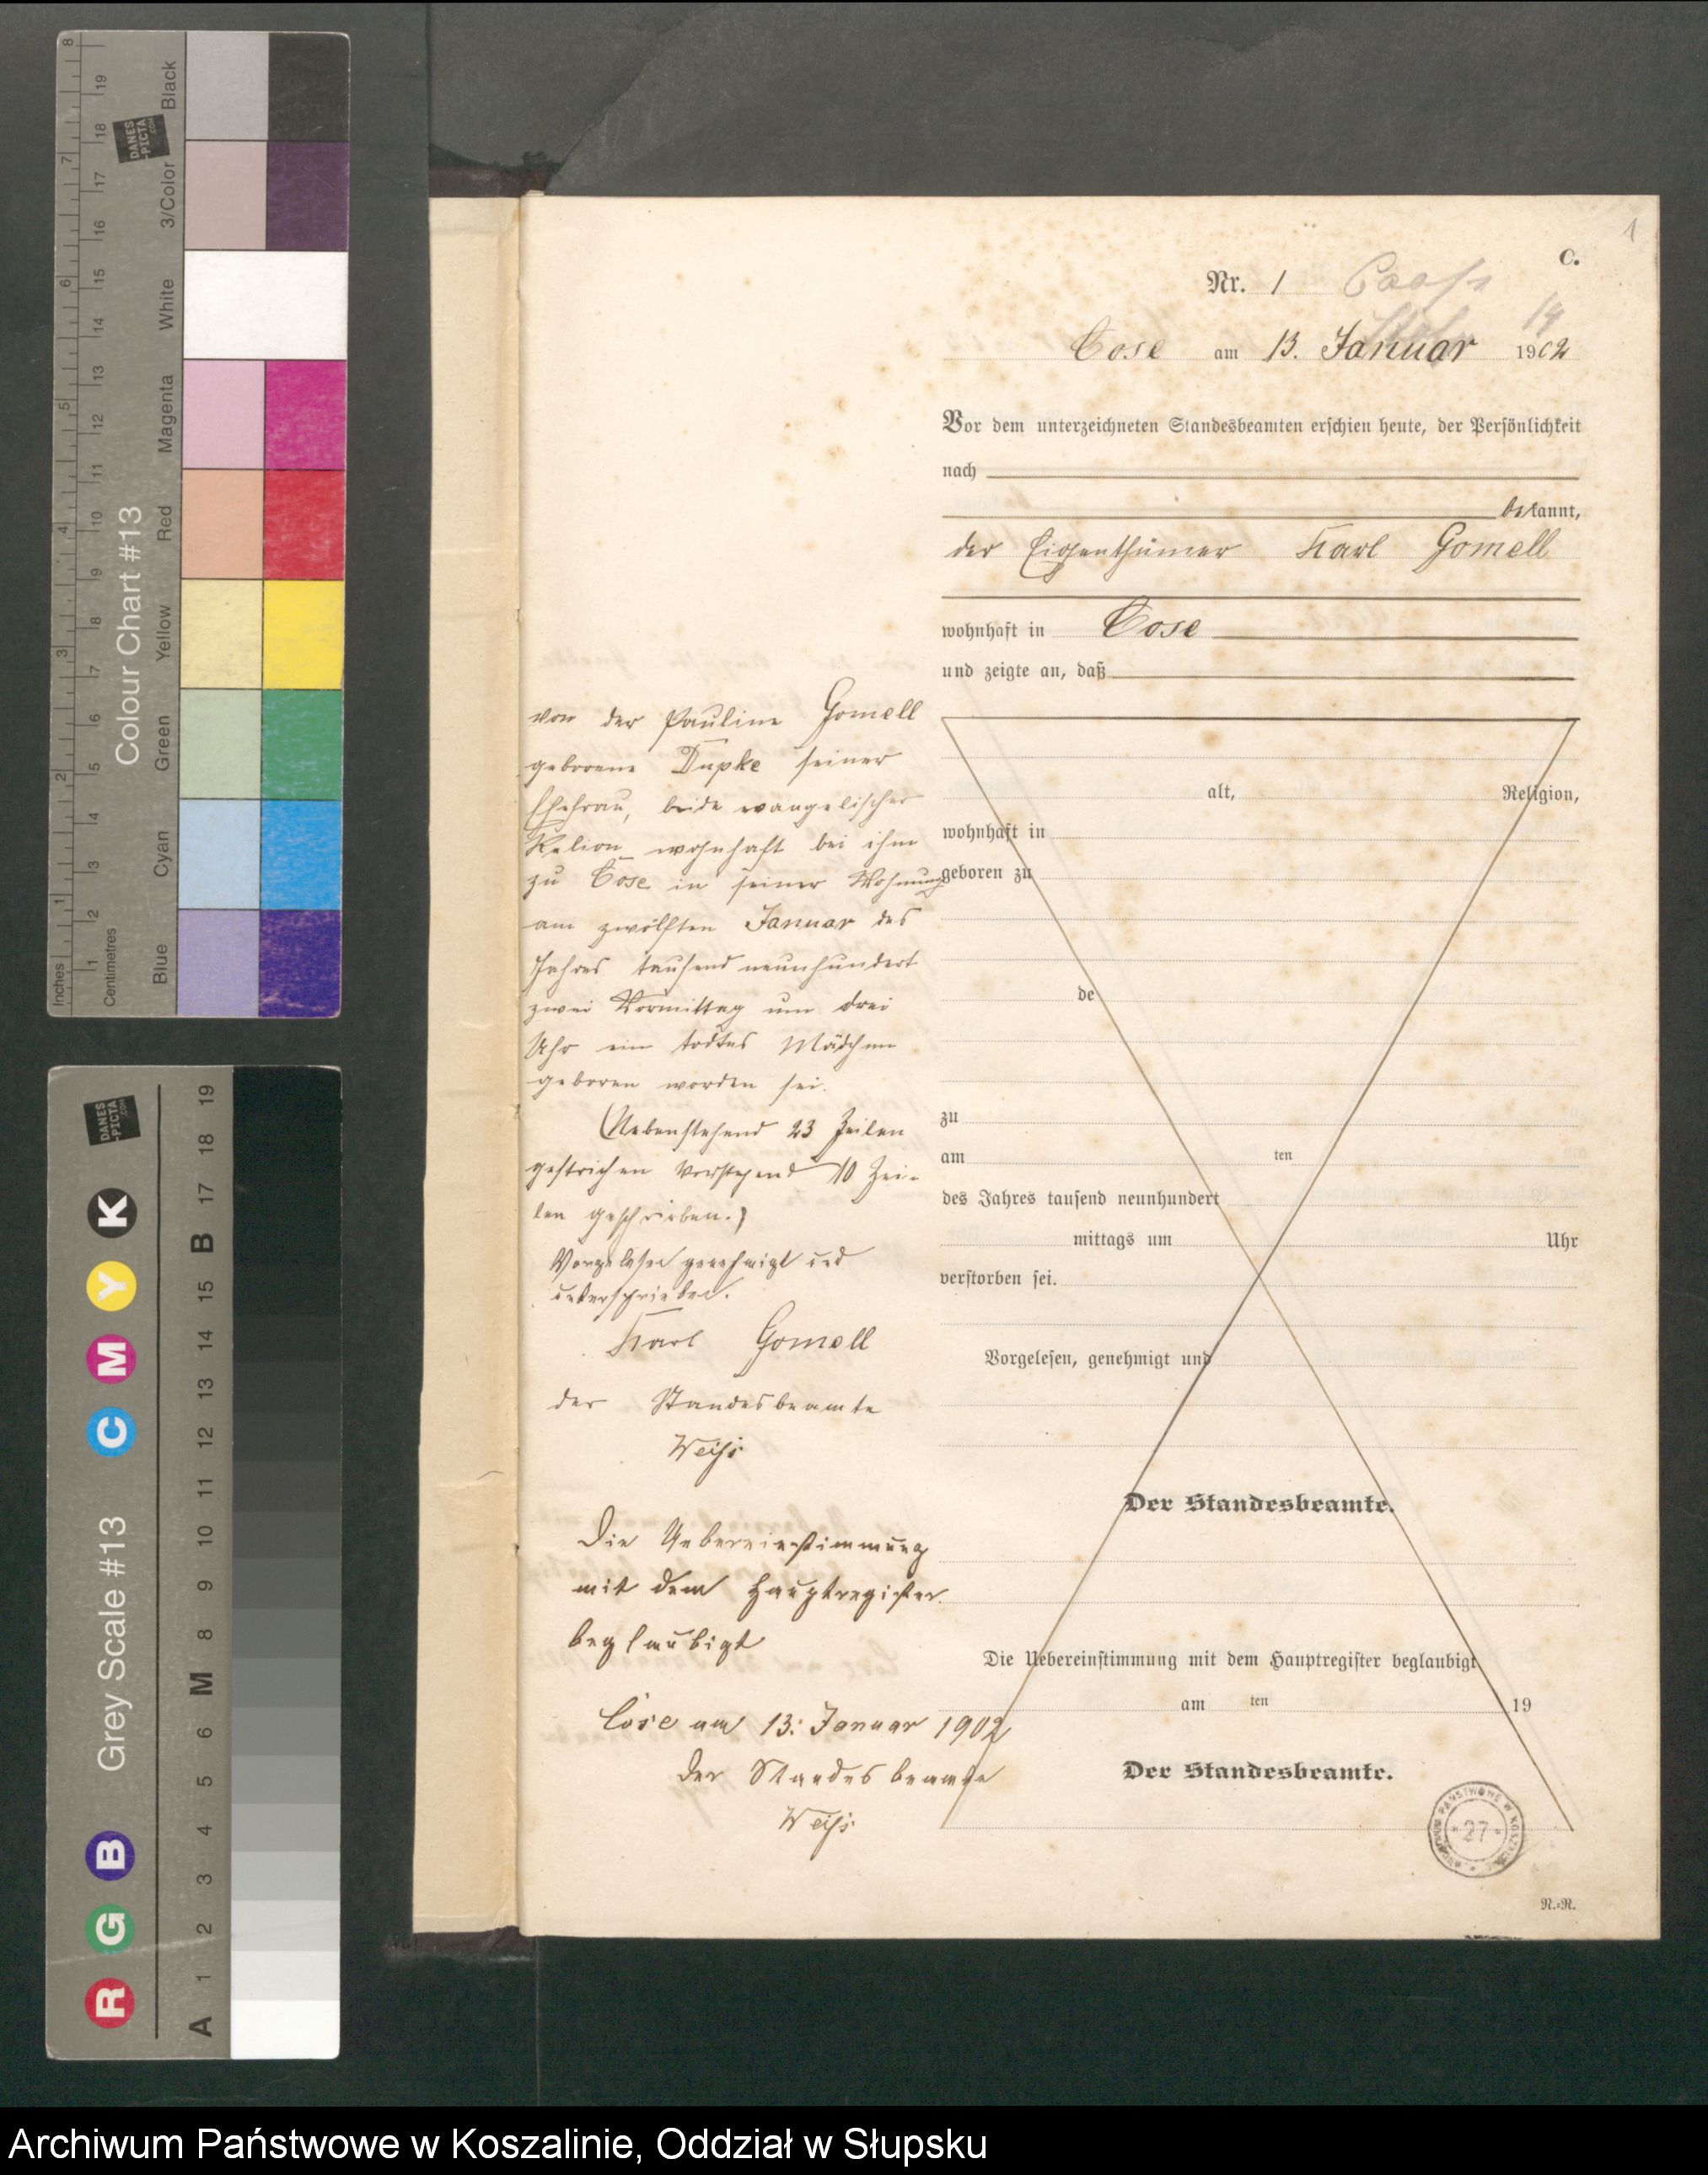 8
7
6
5
4
3
2
1
Inches
19
18
17
16
15
14
13
12
11
10
9
8
7
6
5
4
3
2
1
Centimetres
DANES
-PICTA
.COM
Colour Chart #13
Black
3/Color
White
Magenta
Red
Yellow
Green
Cyan
Blue
DANES
-PICTA
.COM
Grey Scale #13
R G B C M Y K
19
18
17
B
15
14
13
12
11
10
9
8
M
6
5
4
3
2
1
A
1
C.
Nr. 1
Cose am 13. Januar 1902
Vor dem unterzeichneten Standesbeamten erschien heute, der Persönlichkeit
nach
bekannt,
der Eigenthümer Karl Gomell
wohnhaft in Cose
und zeigte an, daß
von der Pauline Gomell
geborene Dupke seiner
Ehefrau, beide evangelischer
Relion wohnhaft bei ihm
zu Cose in seiner Wohnung
am zwölften Januar des
Jahres tausend neunhundert
zwei Vormittag um drei
Uhr ein todtes Mädchen
geboren worden sei.
(Nebenstehend 23 Zeilen
gestrichen Vorstehend 10 Zei-
len geschrieben.)
Vorgelesen genehmigt und
unterschrieben.
Karl Gomell
der Standesbeamte
Weiß
Die Uebereinstimmung
mit dem Hauptregister
beglaubigt
Cose am 13. Januar 1902
Der Standesbeamte
Weiß
alt, Religion,
wohnhaft in
geboren zu
de
zu
am ten
des Jahres tausend neunhundert
mittags um Uhr
verstorben sei.
Vorgelesen, genehmigt und
Der Standesbeamte.
Die Uebereinstimmung mit dem Hauptregister beglaubigt
am ten 19
Der Standesbeamte.
27
N.-N.
Archiwum Państwowe w Koszalinie, Oddział w Słupsku